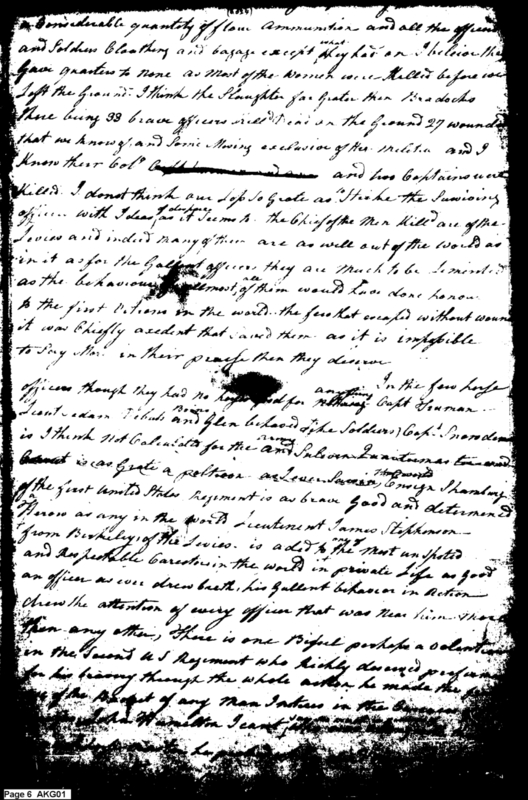 a Considerable quantity of flour Ammunition and all the officers
and Soldiers Cloathing and bagage except what they had on I beleive they
Gave quarters to none as most of the Women were Killed before we
Left the Ground. I think the Slaughter far Grater then Bradocks
there being 33 brave officers Kill'd Dead on the Ground 27 wounded
that we know of and Some Mising exclusive of the Militia and I
Know their Col° and two Captains were
Killed. I do not think our Loss so Grate as to Strike the Surviving
officers with Ideas of despare as it Seems to. the Chief of the Men Kill'd are of the
Levies and indeed many of them are as well out of the World as
in it as for the Gallent officers they are much to be Lemented
as the behaviour of allmost all of them would have done honour
to the first Veterans in the world. the few that escaped without wounds
it was Chiefly axedent that Saved them as it is impossible
to Say More in their praise then they deserve
In the few horse
officers though they had no for anything Capt Truman
Leiut Sedam Debuts Boins and Glen behaved like Soldiers, Capt. Snowden
is I think Not Calculated for the army and
is as Grate a poltroon as I ever Saw in the world Ensign Shamburg
of the first United States Regement is as brave Good and determined a
Heroe as any in the world Lieutenent James Stephenson
from Berkeley of the Levies is aded to one of the Most unspoted
and Respectable Carectors in the world in private Life as Good
an officer as ever drew breth, his Gallent behavior in Action
drew the attention of every officer that was Near him More
than any other, There is one Bisel perhaps a
in the Second U S Regement who Richly deserves preferment
for his bravery through the whole action he made the
of the of any Man I in the
John Hamilton I cant
Page 6 AKG01